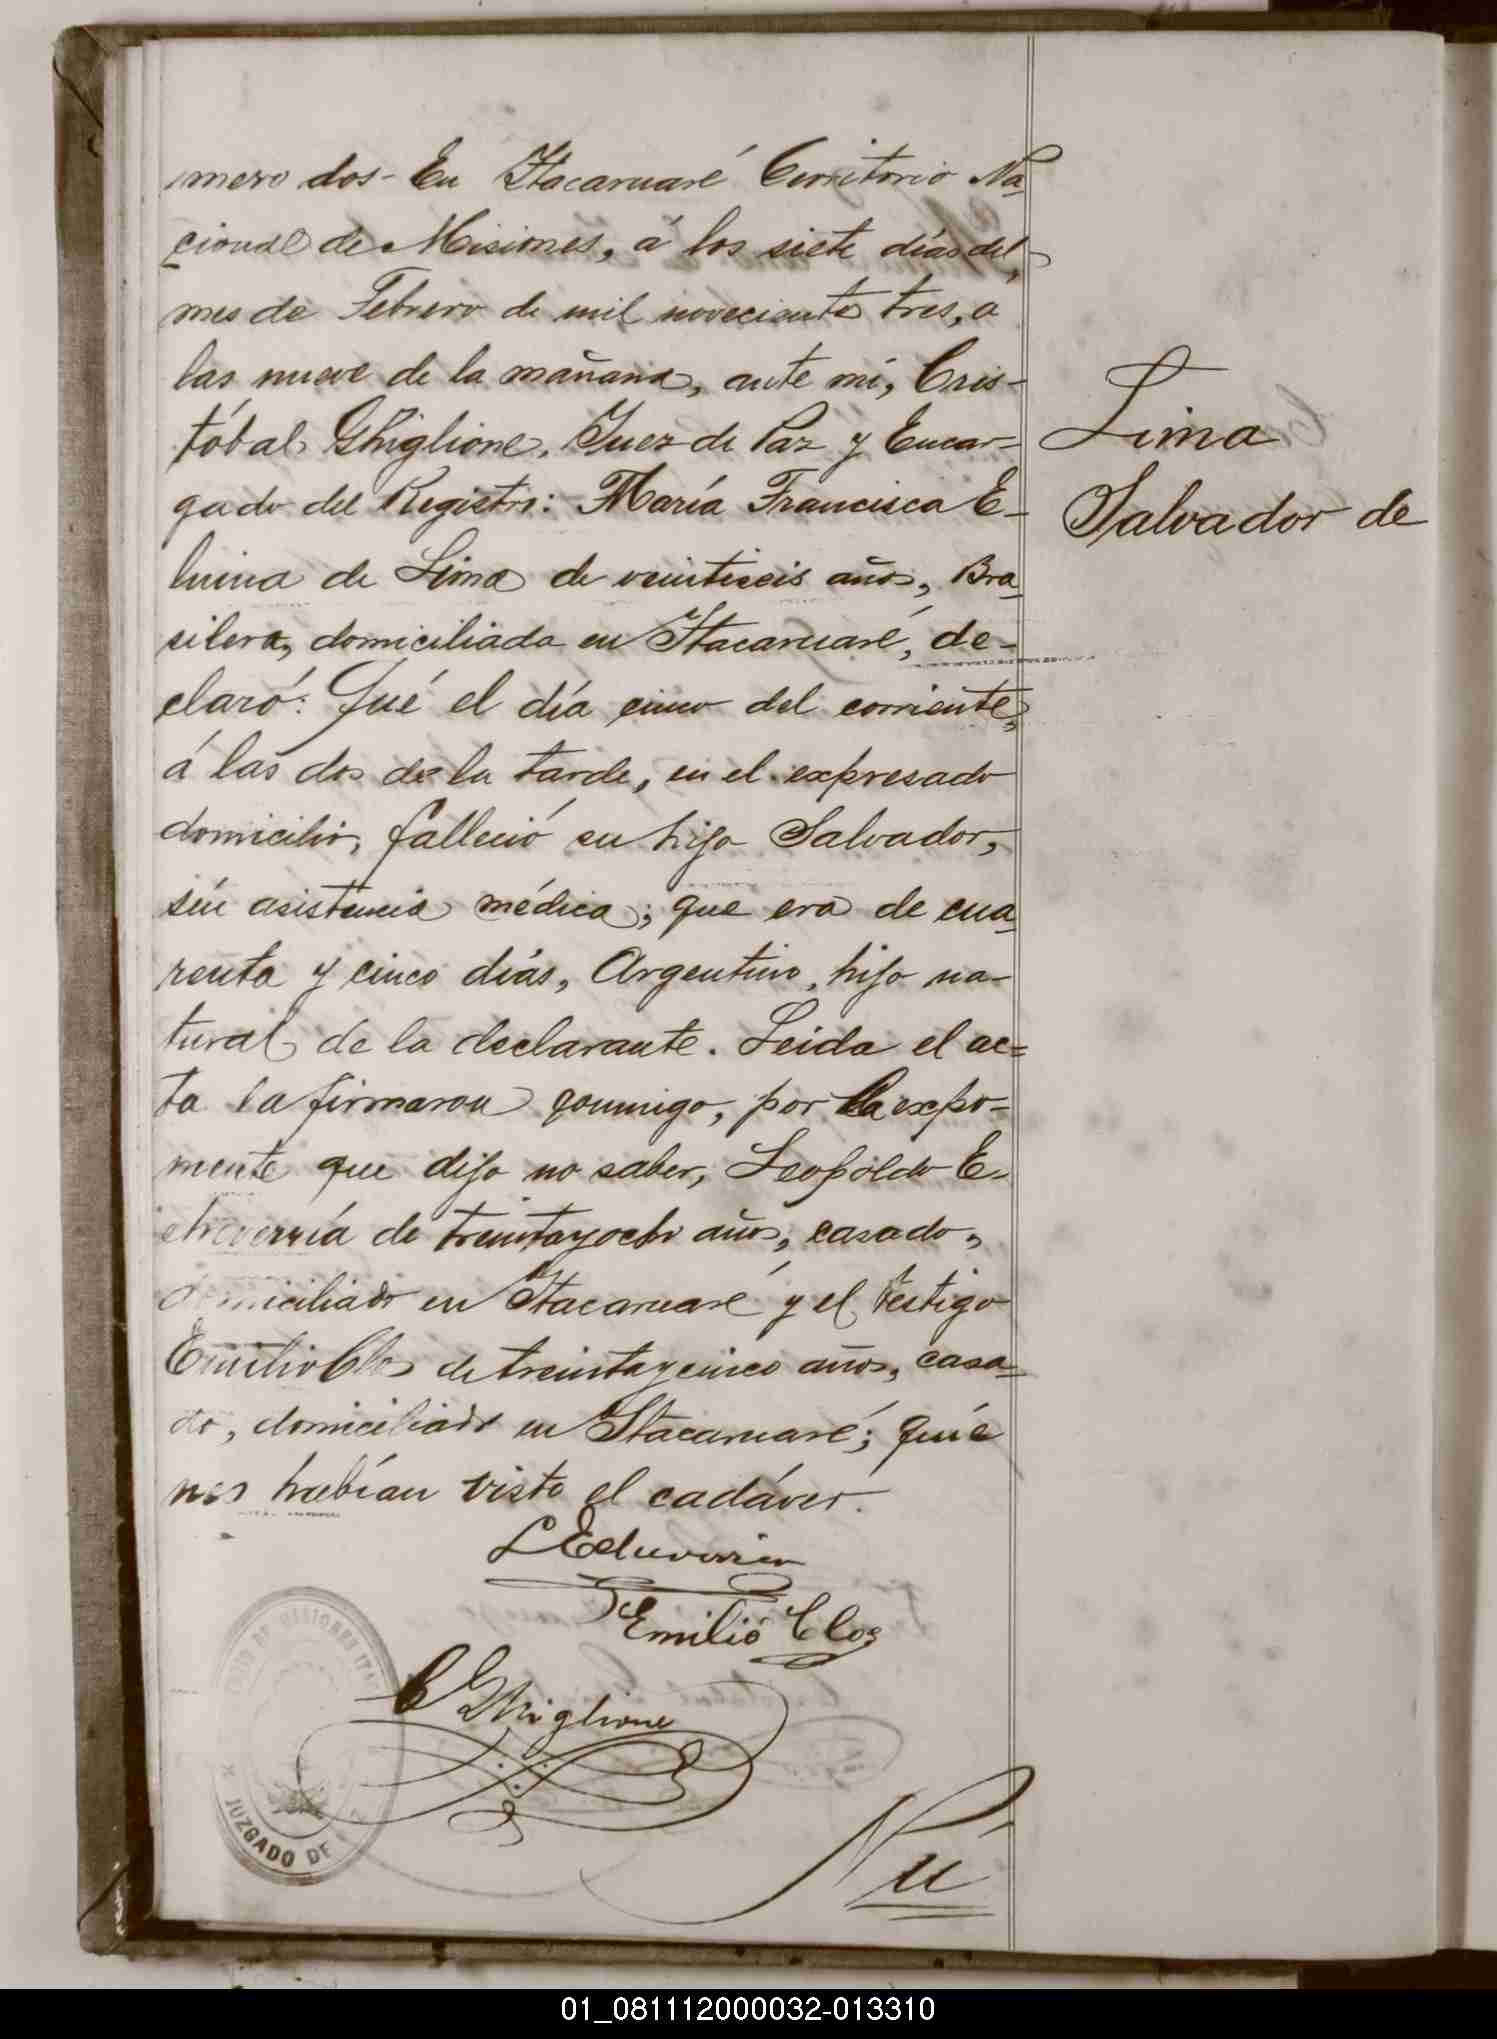 mero dos- En Itacaruaré Territorio Na
cional de Misiones, á los siete días del
mes de Febrero de mil novecientos tres, á
las nueve de la mañana, ante mí, Cris-
tóbal Ghiglione, Juez de Paz y Encar-
gado del Registro: María Francisca E-
luina de Lima de veintiseis años, Bra
silera, domiciliada en Itacaruaré, de-
claró: Qué el día cinco del corriente,
á las dos de la tarde, en el expresado
domicilio, falleció su hijo Salvador,
sin asistencia médica; que era de cua
renta y cinco días, Argentino, hijo na-
tural de la declarante. Leida el ac=
ta la firmaron conmigo, por la expo-
nente que dijo no saber, Leopoldo E-
cheverría de treintayocho años, casado,
domiciliado en Itacaruaré y el testigo
Emilio Clos de treintaycinco años, casa-
do, domiciliado en Itacaruaré; quié
nes habían visto el cadáver.
Lima
Salvador de
L Echeverria
Emilio Clos
C Ghiglione
JUZGADO DE
Nu
01_081112000032-013310